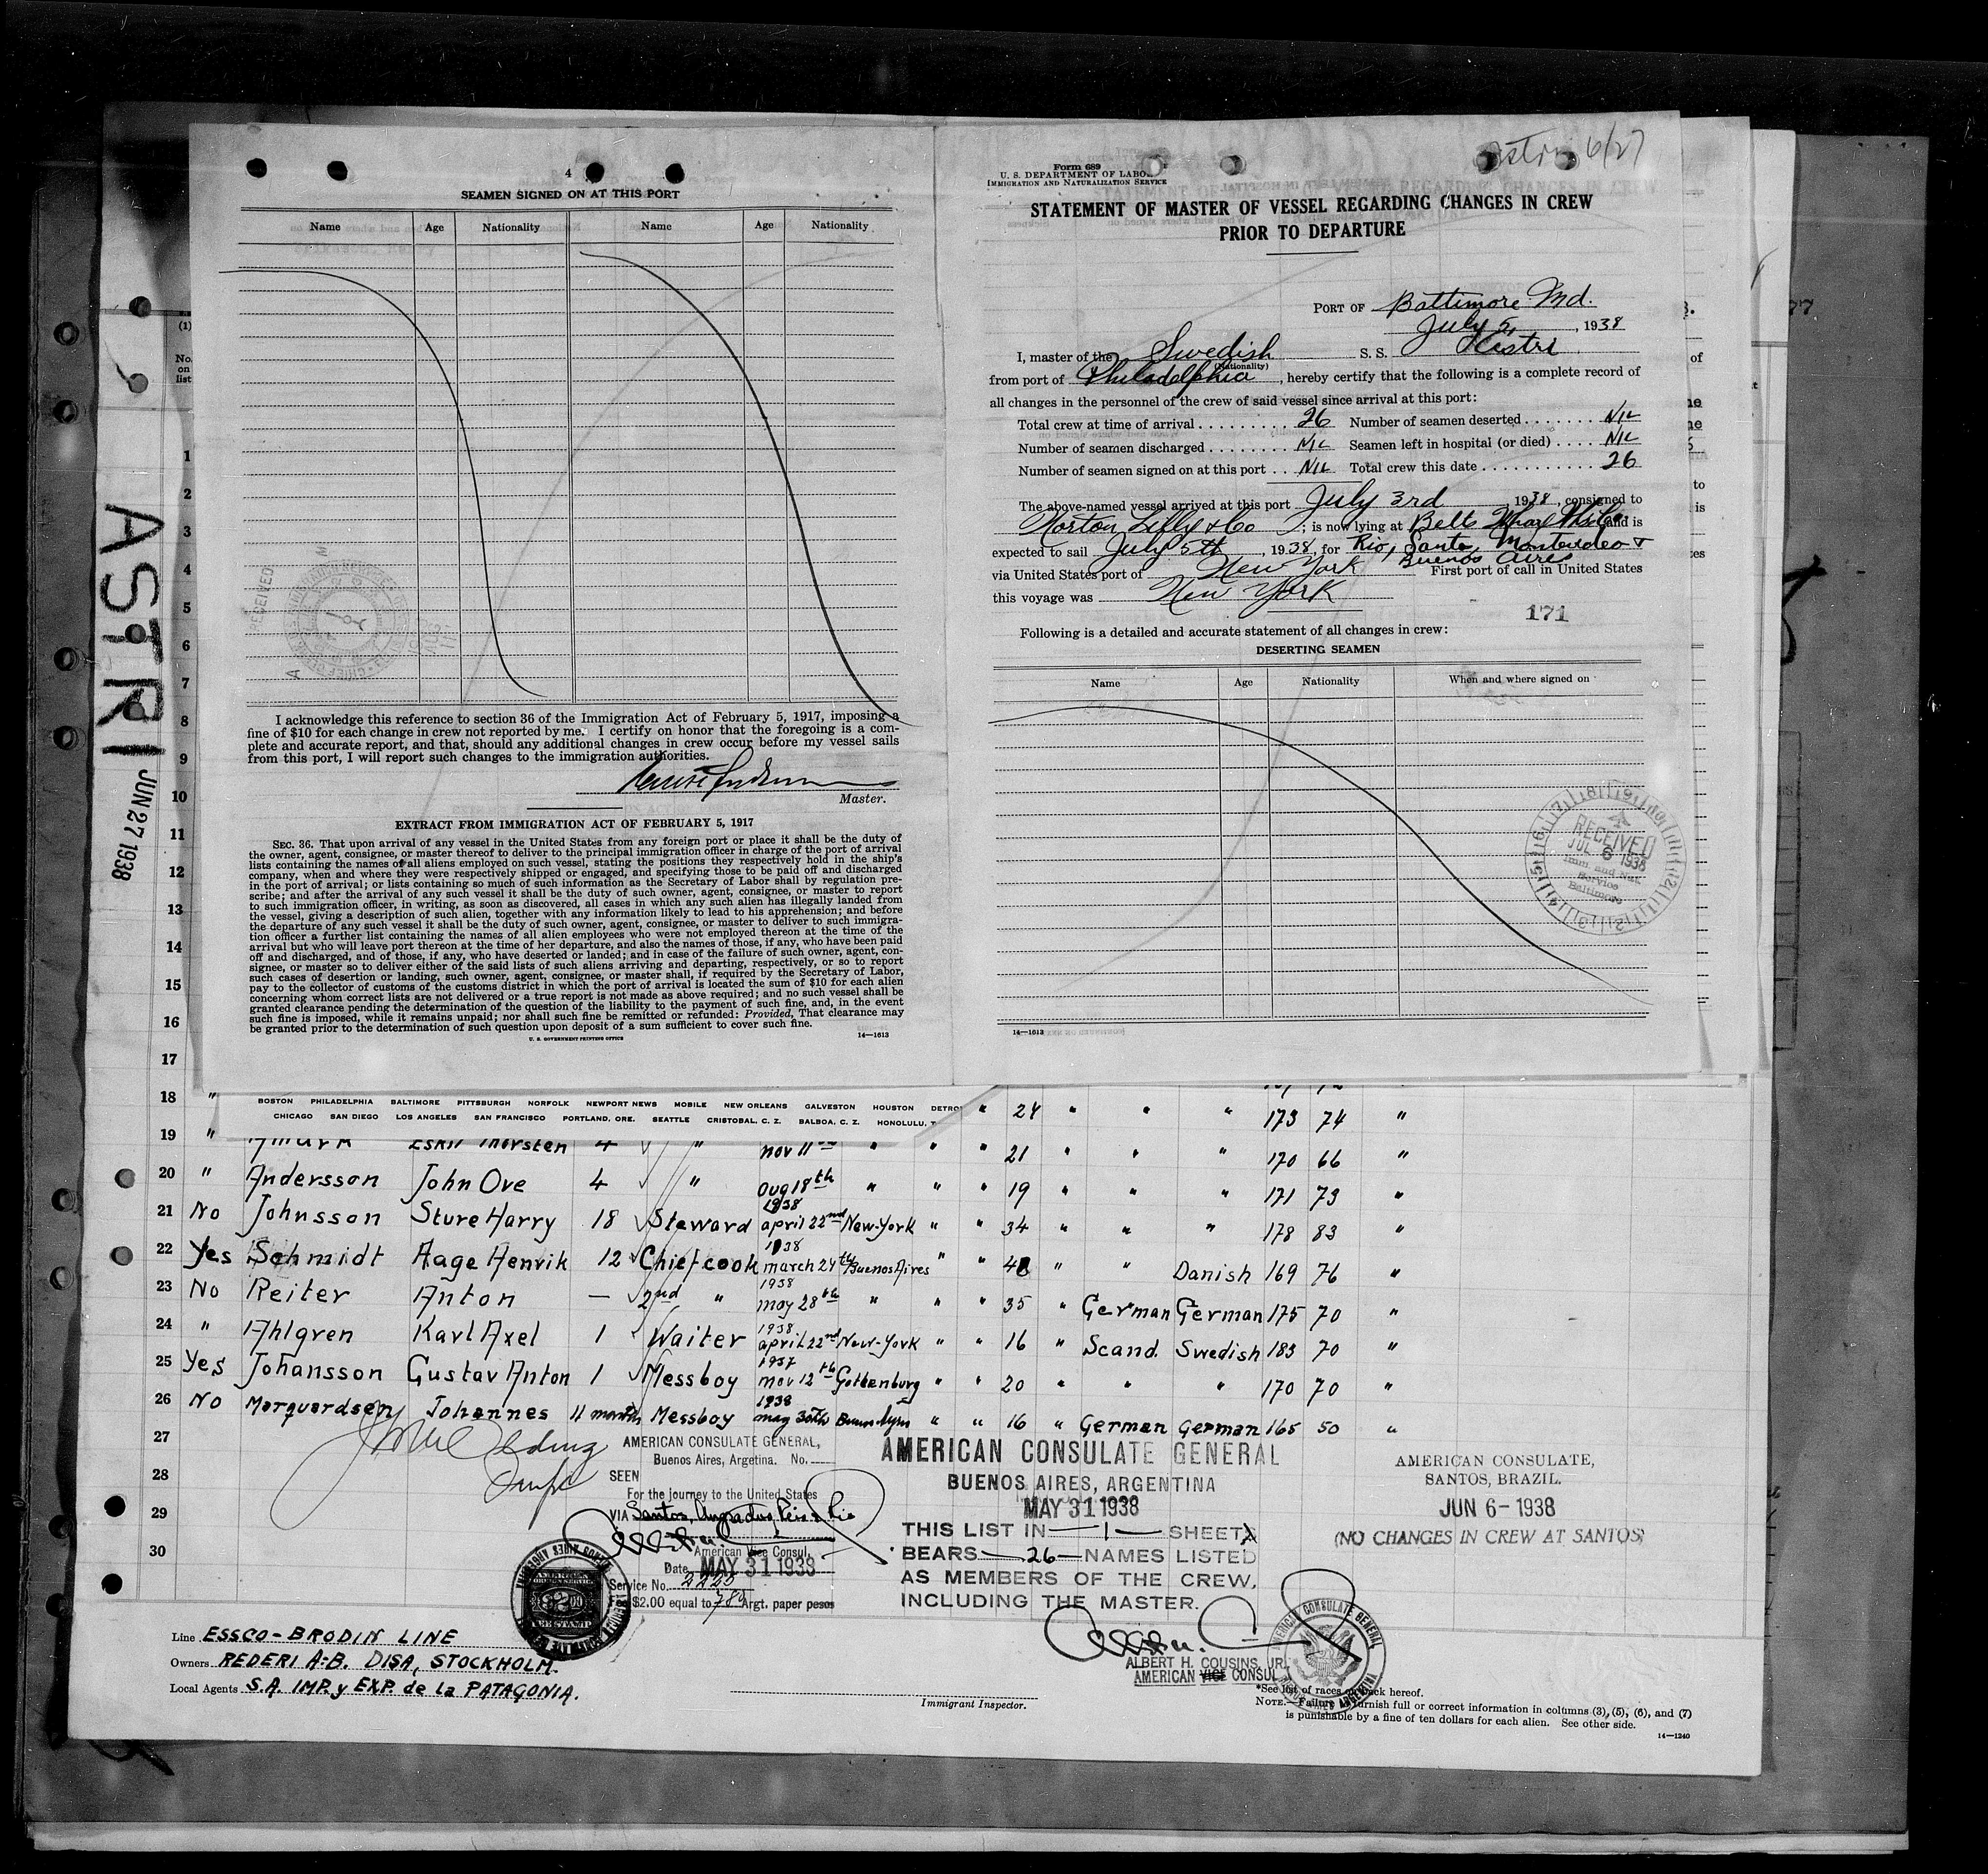 4
SEAMEN SIGNED ON AT THIS PORT
Name Age Nationality Name Age Nationality
I acknowledge this reference to section 36 of the Immigration Act of February 5, 1917, imposing a
fine of $10 for each change in crew not reported by me. I certify on honor that the foregoing is a com-
plete and accurate report, and that, should any additional changes in crew occur before my vessel sails
from this port, I will report such changes to the immigration authorities.
Master.
EXTRACT FROM IMMIGRATION ACT OF FEBRUARY 5, 1917
SEC. 36. That upon arrival of any vessel in the United States from any foreign port or place it shall be the duty of
the owner, agent, consignee, or master thereof to deliver to the principal immigration officer in charge of the port of arrival
lists containing the names of all aliens employed on such vessel, stating the positions they respectively hold in the ship's
company, when and where they were respectively shipped or engaged, and specifying those to be paid off and discharged
in the port of arrival; or lists containing so much of such information as the Secretary of Labor shall by regulation pre-
scribe; and after the arrival of any such vessel it shall be the duty of such owner, agent, consignee, or master to report
to such immigration officer, in writing, as soon as discovered, all cases in which any such alien has illegally landed from
the vessel, giving a description of such alien, together with any information likely to lead to his apprehension; and before
the departure of any such vessel it shall be the duty of such owner, agent, consignee, or master to deliver to such immigra-
tion officer a further list containing the names of all alien employees who were not employed thereon at the time of the
arrival but who will leave port thereon at the time of her departure, and also the names of those, if any, who have been paid
off and discharged, and of those, if any, who have deserted or landed; and in case of the failure of such owner, agent, con-
signee, or master so to deliver either of the said lists of such aliens arriving and departing, respectively, or so to report
such cases of desertion or landing, such owner, agent, consignee, or master shall, if required by the Secretary of Labor,
pay to the collector of customs of the customs district in which the port of arrival is located the sum of $10 for each alien
concerning whom correct lists are not delivered or a true report is not made as above required; and no such vessel shall be
granted clearance pending the determination of the question of the liability to the payment of such fine, and, in the event
such fine is imposed, while it remains unpaid; nor shall such fine be remitted or refunded: Provided, That clearance may
be granted prior to the determination of such question upon deposit of a sum sufficient to cover such fine.
U. S. GOVERNMENT PRINTING OFFICE 14—1613
6/27
Form 689
U. S. DEPARTMENT OF LABOR
IMMIGRATION AND NATURALIZATION SERVICE
STATEMENT OF MASTER OF VESSEL REGARDING CHANGES IN CREW
PRIOR TO DEPARTURE
PORT OF Baltimore Md.
July 5, 1938
I, master of the Swedish S. S. Astri
(Nationality)
from port of Philadelphia, hereby certify that the following is a complete record of
all changes in the personnel of the crew of said vessel since arrival at this port:
Total crew at time of arrival 26 Number of seamen deserted NIL
Number of seamen discharged NIL Seamen left in hospital (or died) NIL
Number of seamen signed on at this port NIL Total crew this date 26
The above-named vessel arrived at this port July 3rd 1938, consigned to
Norton Lilly & Co; is now lying at Belts Wharf and is
expected to sail July 5th, 1938, for Rio, Santo, Montevideo &
Buenos Aires
via United States port of New York First port of call in United States
this voyage was New York
171
Following is a detailed and accurate statement of all changes in crew:
DESERTING SEAMEN
Name Age Nationality When and where signed on
RECEIVED
JUL 6 1938
Imm. and Nat.
Service
Baltimore
14—1613
ASTRI
JUN 27 1938
(1)
No.
on
list
1
2
3
4
5
6
7
8
9
10
11
12
13
14
15
16
17
BOSTON PHILADELPHIA BALTIMORE PITTSBURGH NORFOLK NEWPORT NEWS MOBILE NEW ORLEANS GALVESTON HOUSTON
CHICAGO SAN DIEGO LOS ANGELES SAN FRANCISCO PORTLAND, ORE. SEATTLE CRISTOBAL, C. Z. BALBOA, C. Z. HONOLULU,
18 " " 24 " " " 173 74 "
19 " Eskil Thorsten 4 " nov 11 " " " 21 " " " 170 66 "
20 " Andersson John Ove 4 " aug 18th " " " 19 " " " 171 73 "
21 No Johnsson Sture Harry 18 Steward 1938 april 22nd New-York " " 34 " " " 178 83 "
22 Yes Schmidt Aage Henrik 12 Chief cook 1938 march 24th Buenos Aires " " 48 " " Danish 169 76 "
23 No Reiter Anton — 2nd " 1938 may 28th " " " 35 " German German 175 70 "
24 " Ahlgren Karl Axel 1 Waiter 1938 april 22nd New-York " " 16 " Scand. Swedish 183 70 "
25 Yes Johansson Gustav Anton 1 Messboy 1937 nov 12th Gothenburg " " 20 " " " 170 70 "
26 No Marquardsen Johannes 11 months Messboy 1938 may 30th Buenos Ayres " " 16 " German German 165 50 "
27
28
29
30
AMERICAN CONSULATE GENERAL,
Buenos Aires, Argetina. No.
SEEN
For the journey to the United States
VIA Santos, Rio
American Vice Consul,
Date MAY 31 1938
Service No. 2223
Fee $2.00 equal to Argt. paper pesos
AMERICAN CONSULATE GENERAL
BUENOS AIRES, ARGENTINA
MAY 31 1938
THIS LIST IN — 1 — SHEET
BEARS — 26 — NAMES LISTED
AS MEMBERS OF THE CREW,
INCLUDING THE MASTER.
ALBERT H. COUSINS, JR.
AMERICAN VICE CONSUL
AMERICAN CONSULATE,
SANTOS, BRAZIL.
JUN 6 - 1938
(NO CHANGES IN CREW AT SANTOS)
Line ESSCO-BRODIN LINE
Owners REDERI A-B. DISA, STOCKHOLM.
Local Agents S.A. IMP. y EXP. de la PATAGONIA.
Immigrant Inspector.
*See list of races on back hereof.
NOTE.—Failure to furnish full or correct information in columns (3), (5), (6), and (7)
is punishable by a fine of ten dollars for each alien. See other side.
14—1240